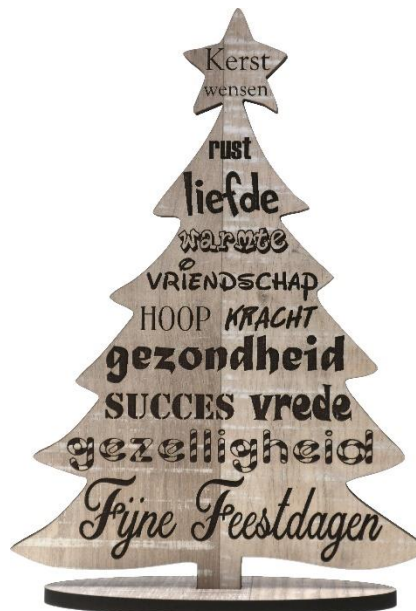 Kerst
wensen
rust
liefde
warmte
VRIENDSCHAP
HOOP KRACHT
gezondheid
SUCCES vrede
gezelligheid
Fijne Feestdagen